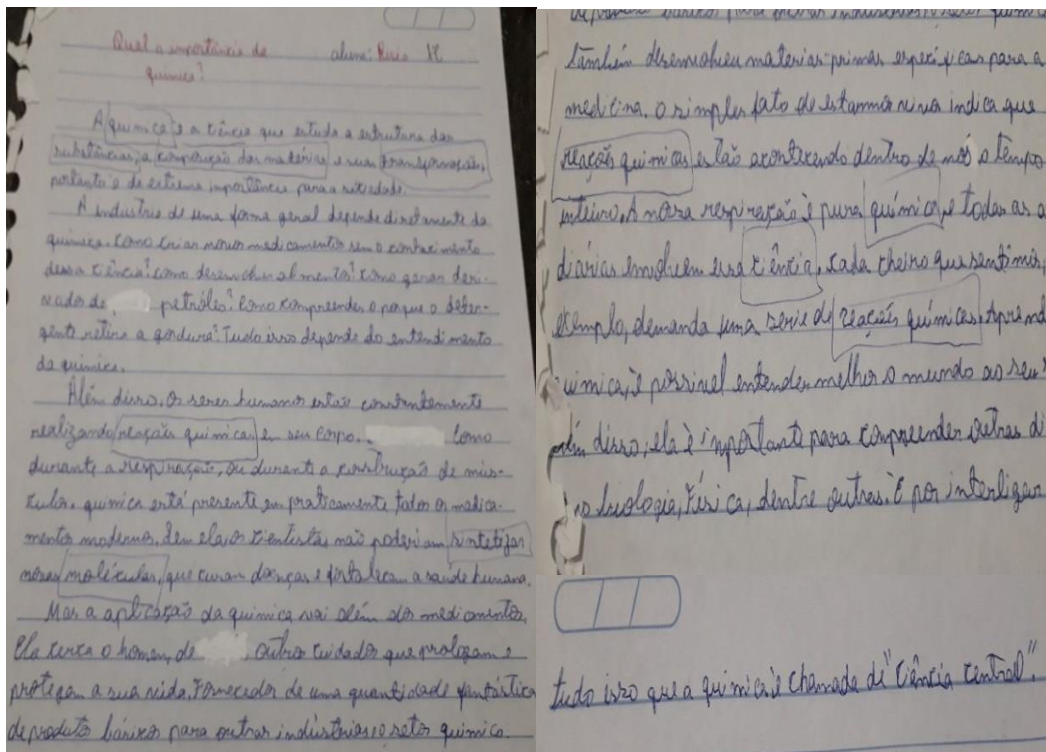 Qual a importância da aluna: Ruis H
química?
A química é a ciência que estuda a estrutura das
substâncias, a composição das matérias e suas transformações,
portanto é de extrema importância para a sociedade.
A indústria de uma forma geral depende diretamente da
química. Como criar novos medicamentos sem o conhecimento
dessa ciência? como desenvolver alimentos? como gerar deri-
vados de petróleo? Como compreender o porque o deter-
gente retira a gordura? Tudo isso depende do entendimento
da química.
Além disso, os seres humanos estão constantemente
realizando reações quimicas em seu corpo. Como
durante a respiração, ou durante a construção de mús-
culos. quimica está presente em praticamente todos os medica-
mentos modernos. Sem ela, os cientistas não poderiam sintetizar
novas moléculas, que curam doenças e fortalecem a saude humana.
Mas a aplicação da quimica vai além dos medicamentos.
Ela cerca o homem, de outros cuidados que prolongam e
protegem a sua vida. Fornecedor de uma quantidade fantástica
de produtos básicos para outras indústrias, o setor quimico.
de produtos básicos para outras indústrias, o setor quimico
também desenvolveu materias-primas especificas para a
medicina. o simples fato de estarmos vivos indica que
reações quimicas estão acontecendo dentro de nós o tempo
inteiro. A nossa respiração è pura química, e todas as a
diárias envolvem essa ciência. Cada cheiro que sentimos,
exemplo, demanda uma serie de reações químicas. Aprend
uimica, è possivel entender melhor o mundo ao seu
disso, ela è importante para compreender outras di
biologia, Física, dentre outras. È por interligar
tudo isso que a quimica è chamada de "Ciência Central".